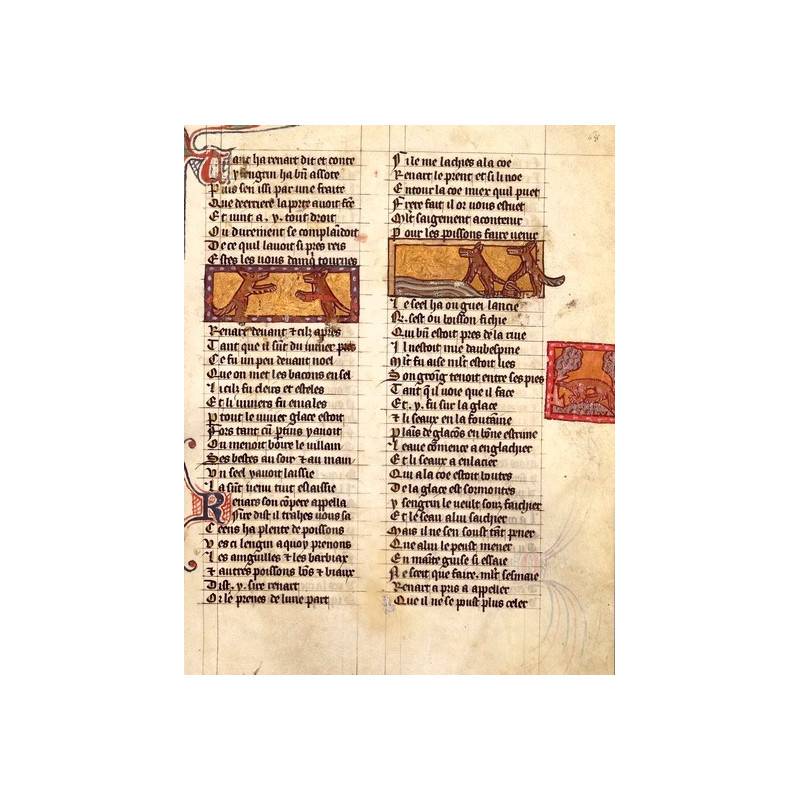 Tant ha renart dit et conte
q̃ ysengrin ha bn̄ assote
Puis sen issi par une fraite
Que derrierе la porte auoit fc̃e
Et uint a .y. tout droit
Qui durement se complaīdoit
De ce quil lauoit si pres reis
Estes les uous dam̄q̨ tournes
Renart deuant ⁊ cilz apres
Tant que il sūt du uiuier pres
Ce fu un peu deuant noel
Que on met les bacons en sel
Li cilz fu clers et esteles
Et li uiuiers fu engales
P tout le uiuier glace estoit
Fors tant cū ptuis yauoit
Ou menoit boire le uillain
Ses bestes au soir ⁊ au main
Vn seel yauoit laissie
La sūt uenu tuit eslaissie
Renars son cōpere appella
Sire dist il trahes uous sa
Ceens ha plente de poissons
Ves ci lengin a quoy prenons
Les anguilles ⁊ les barbiax
⁊ autres poissons bōs ⁊ biaux
Dist .y. sire renart
Or le prenes de lune part
Si le me lachies a la coe
Renart le prent et si li noe
Entour la coe miex quil puet
Frere fait il or uous estuet
Mlt saigement a contenir
Pour les poissons faire uenir
Le seel ha ou guei lancie
R. sest ou boisson fichie
Qui bn̄ estoit pres de la riue
Il nestoit mie daubespine
Mlt fu aise mlt estoit lies
Son groīg tenoit entre ses pies
Tant q̃ il uoie que il face
Et .y. fu sur la glace
⁊ li seaux en la fontaīne
Plaīs de glacōs en bōne estrine
Leaue cōmence a englachier
Et li seaux a enlacier
Qui a la coe estoit noutes
De la glace est sormontes
ysengrin le ueult souz fauchier
Et le seau alui sachier
Mais il ne sen soust tāt pener
Que alui le peust mener
En mainte guise si essaie
Ne sceit que faire. mlt sesmaie
Renart a pris a appeller
Que il ne se puet plus celer